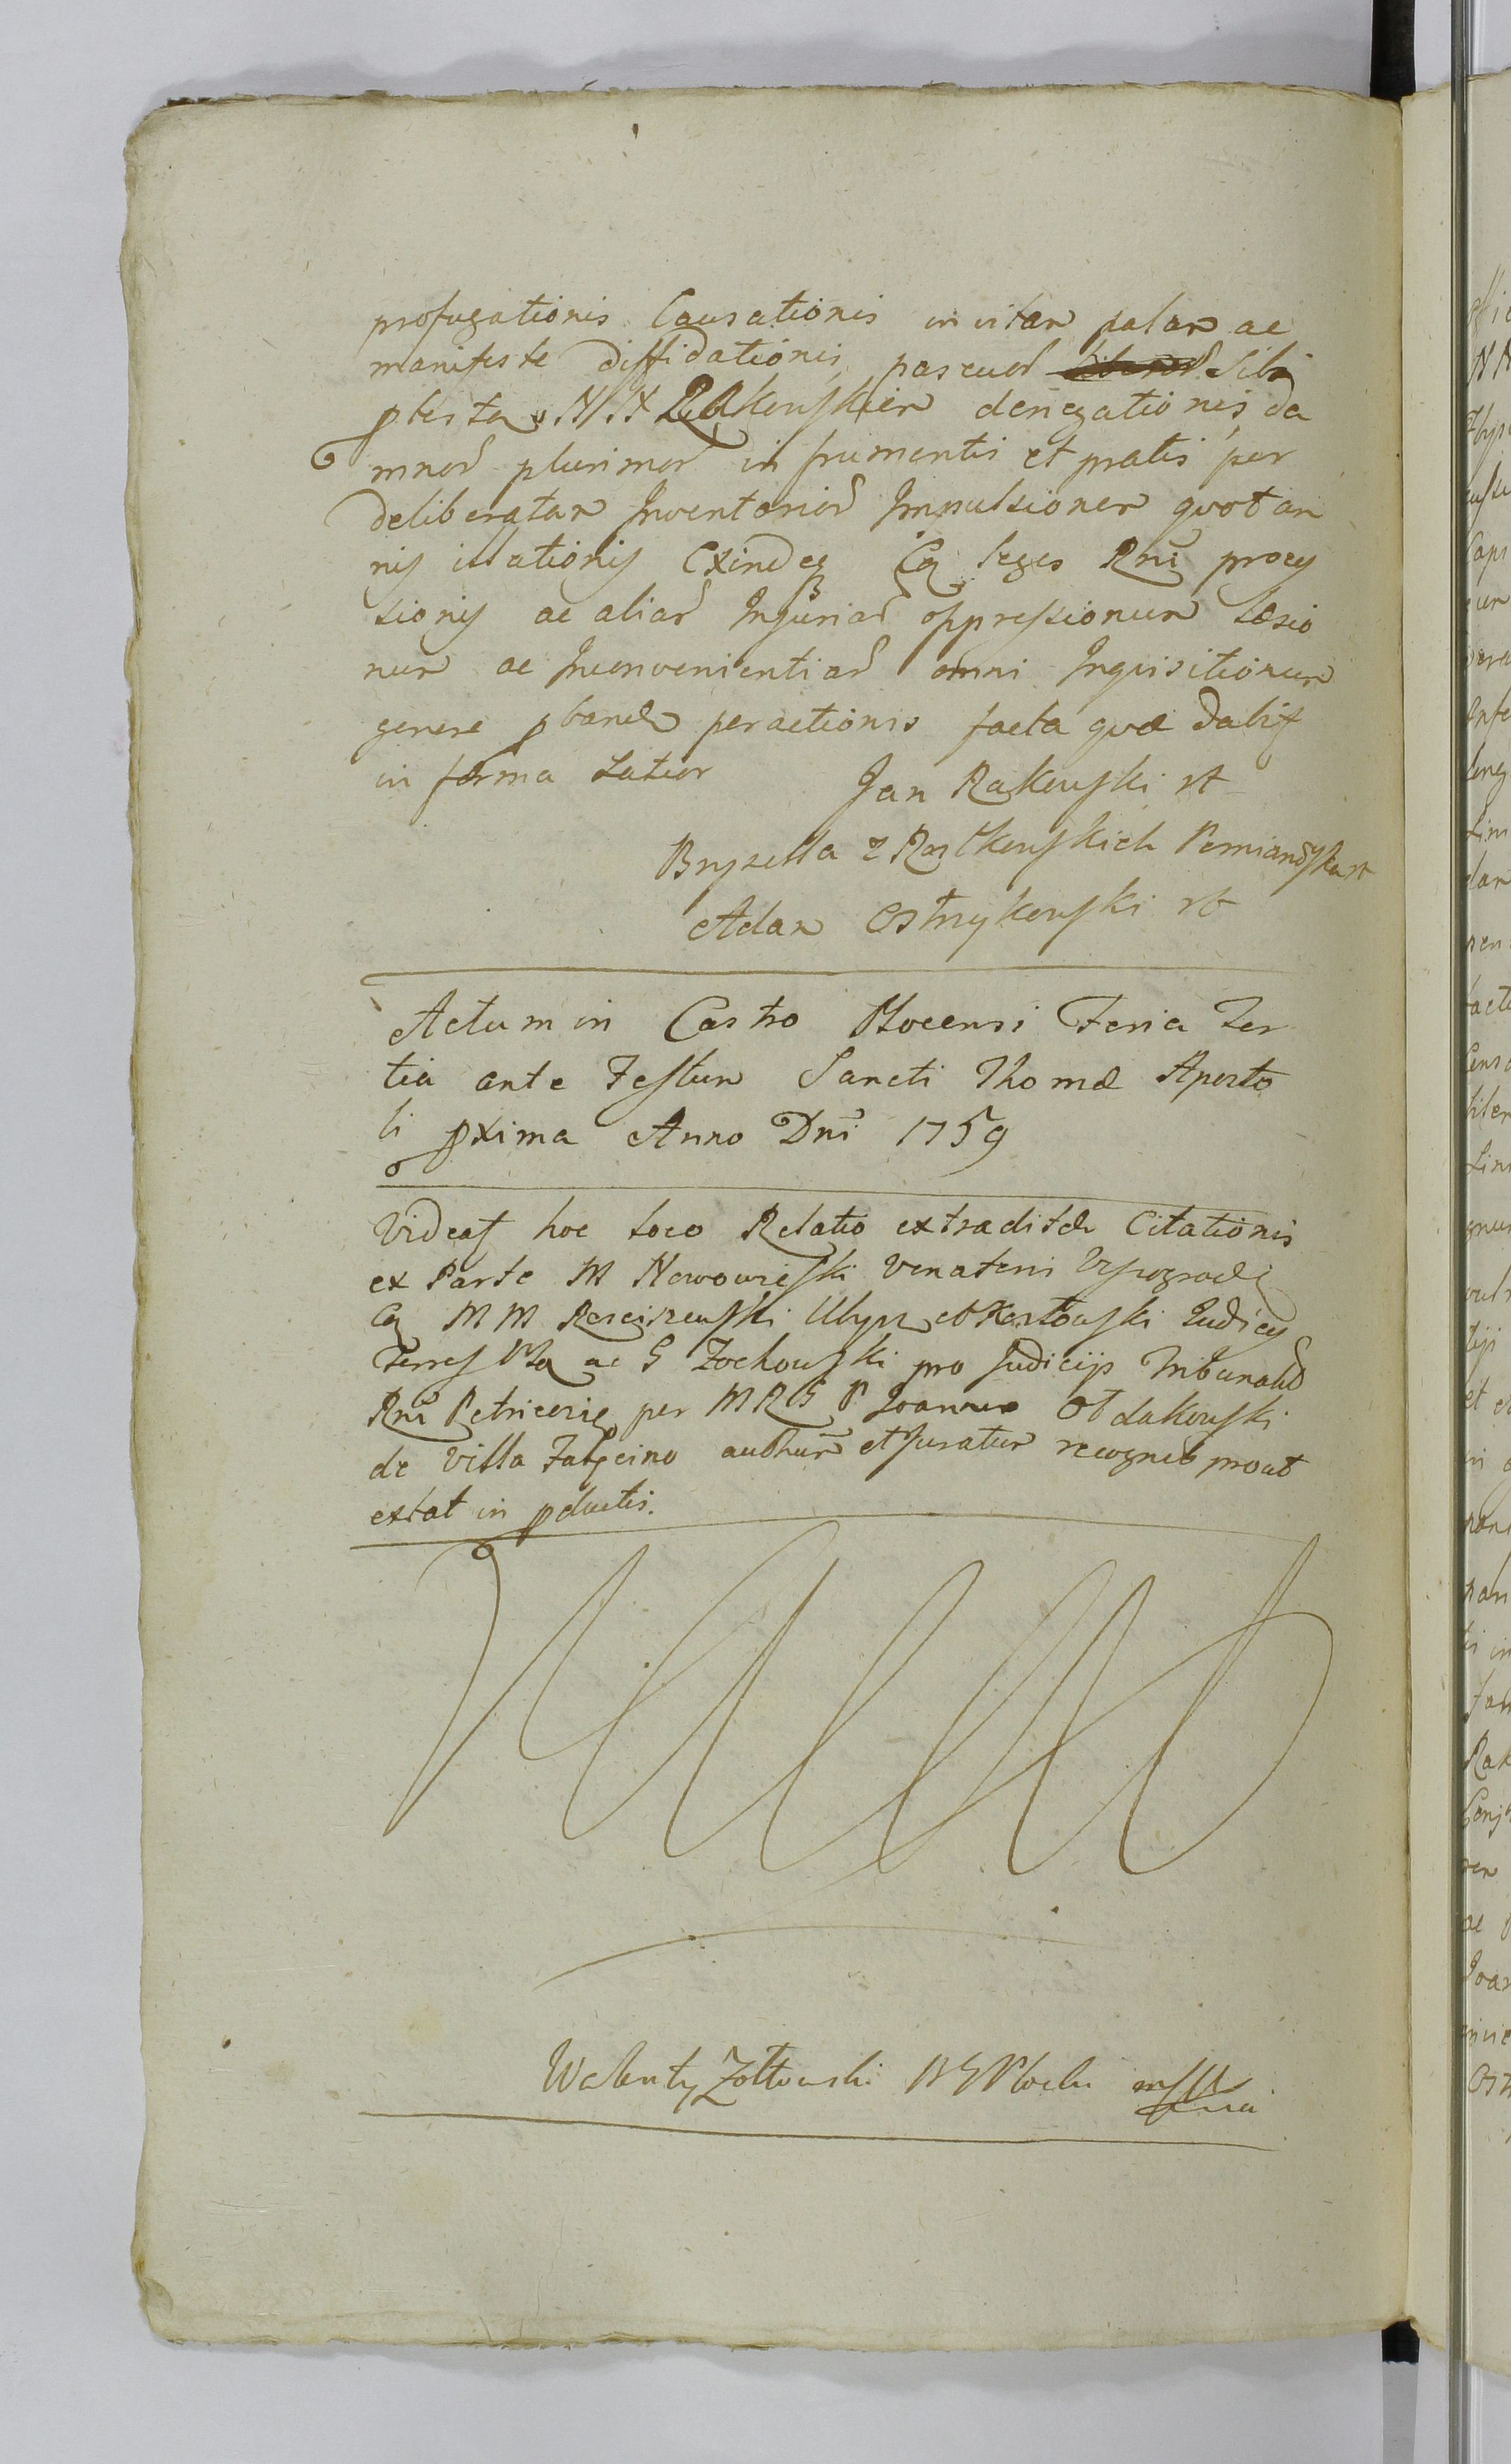 profugationis Causationis in vitam palam ac
manifeste diffidationis pascuor Sibi
ptesta NN Rakowskiem denegationis da
mnor plurimor in frumentis et pratis per
deliberatam Inventarior Impulsionem quotan
nis illationis Exindeq Ca leges Rni proces
sionis ac aliar Injuriar oppressionum læsio
num ac Inconvenientiar omni Inquisitionum
genere pbandæ peractionis facta quæ dabit
in forma Latior
Jan Rakowski
Bryzella z Rostkowskich Pemianoska
Adam Ostrzykowski
Actum in Castro Plocensi Feria Ter
tia ante Festum Sancti Thomæ Aposto
li pxima Anno Dni 1759
Videat hoc loco Relatio extraditæ Citationis
ex Parte M Nowowieski Venatoris Wyszogrod
Ca MM Rosciszewski et Karłowski Judicis
Terres ac G Zochowski pro Judicijs Tribunalis
Rni Petricovie per MRGP Joannem Otlakowski
de Villa authum et Juratum recognit prout
extat in pductis.
Walenty Zołtowski Płocki